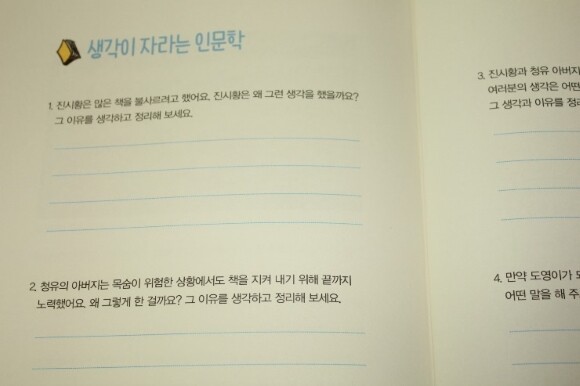 생각이 자라는 인문학
1. 진시황은 많은 책을 불사르려고 했어요. 진시황은 왜 그런 생각을 했을까요?
그 이유를 생각하고 정리해 보세요.
2. 청유의 아버지는 목숨이 위험한 상황에서도 책을 지켜 내기 위해 끝까지
노력했어요. 왜 그렇게 한 걸까요? 그 이유를 생각하고 정리해 보세요.
3. 진시황과 청유 아버지
여러분의 생각은 어떤
그 생각과 이유를 정리
4. 만약 도영이가
어떤 말을 해 주